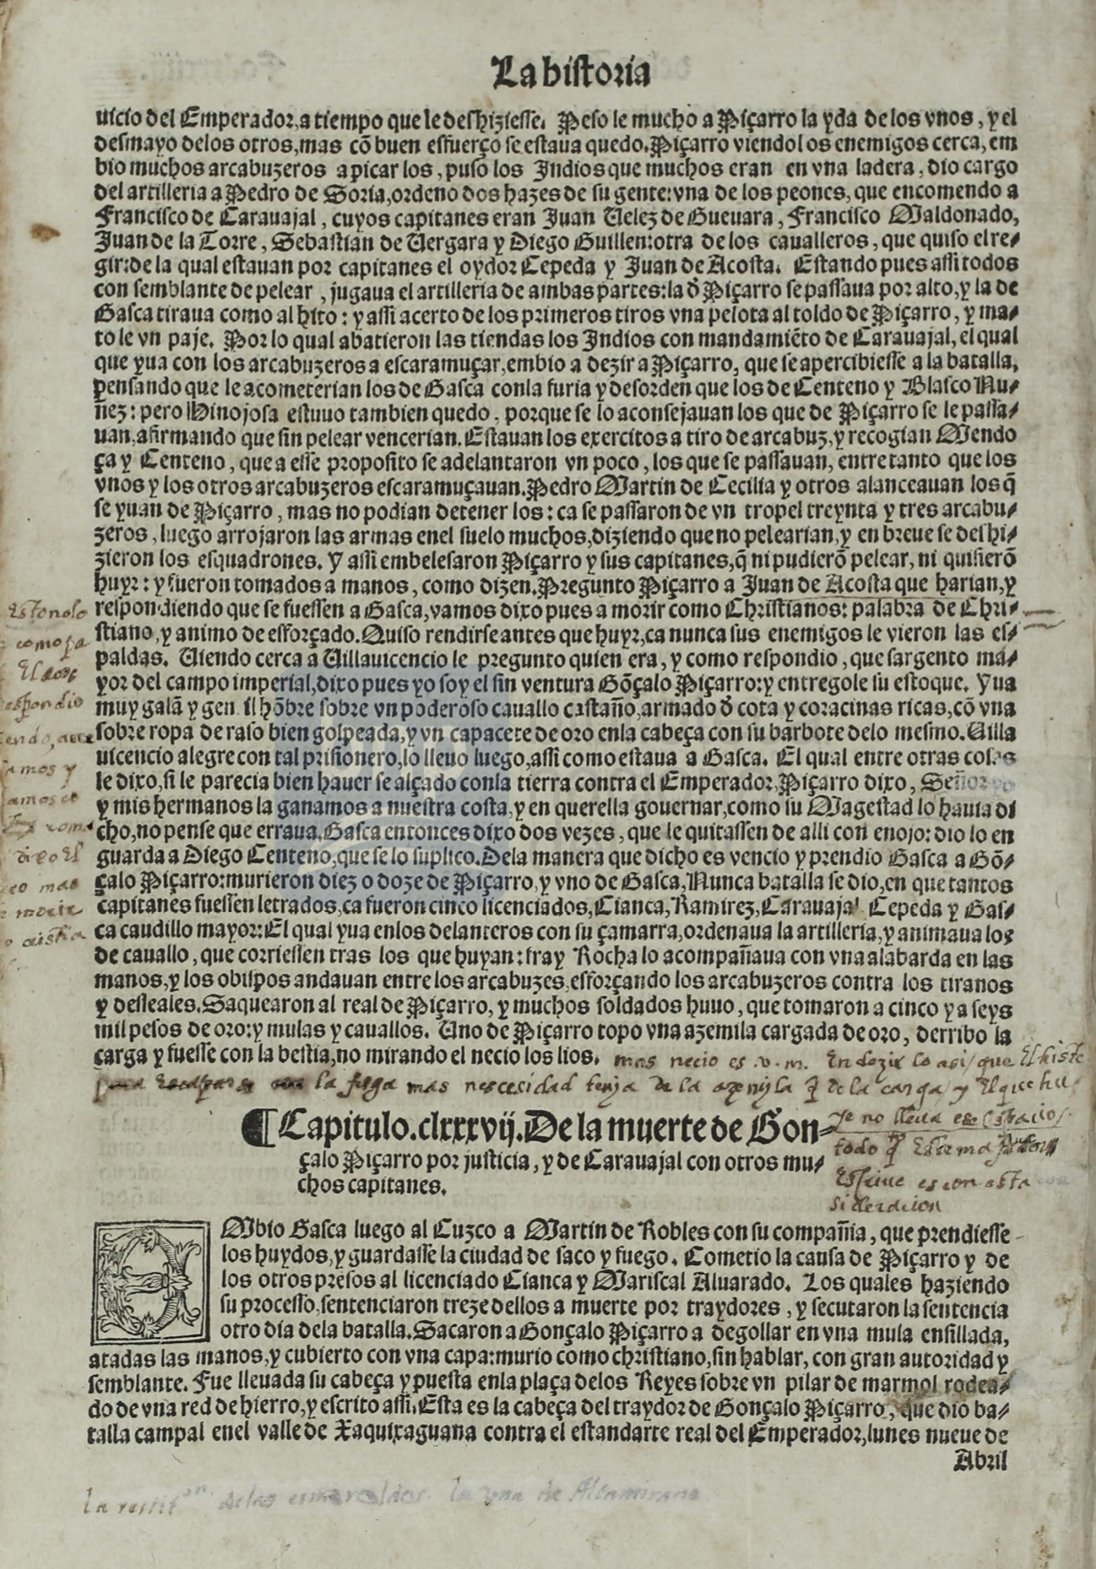 La historia
uicio del Emperador, a tiempo que le deshiziesse. Peso le mucho a Piçarro la yda de los vnos, y el
desmayo delos otros, mas cõ buen esfuerço se estaua quedo. Piçarro viendo los enemigos cerca, em
bio muchos arcabuzeros a picar los, puso los Indios que muchos eran en vna ladera, dio cargo
del artilleria a Pedro de Soria, ordeno dos hazes de su gente: vna de los peones, que encomendo a
Francisco de Carauajal, cuyos capitanes eran Juan Velez de Gueuara, Francisco Maldonado,
Juan de la Torre, Sebastian de Vergara y Diego Guillen: otra de los caualleros, que quiso el re-
gir: de la qual estauan por capitanes el oydor Cepeda y Juan de Acosta. Estando pues assi todos
con semblante de pelear, jugaua el artilleria de ambas partes: la ð Piçarro se passaua por alto, y la de
Gasca tiraua como al hito: y assi acerto de los primeros tiros vna pelota al toldo de Piçarro, y ma-
to le vn paje. Por lo qual abatieron las tiendas los Indios con mandamiẽto de Carauajal, el qual
que yua con los arcabuzeros a escaramuçar, embio a dezir a Piçarro, que se apercibiesse a la batalla,
pensando que le acometerian los de Gasca conla furia y desorden que los de Centeno y Blasco Nu-
ñez: pero Hinojosa estuuo tambien quedo, porque se lo aconsejauan los que de Piçarro se le passa-
uan, afirmando que sin pelear vencerian. Estauan los exercitos a tiro de arcabuz, y recogian Mendo
ça y Centeno, que a esse proposito se adelantaron vn poco, los que se passauan, entre tanto que los
vnos y los otros arcabuzeros escaramuçauan. Pedro Martin de Cecilia y otros alanceauan los q̃
se yuan de Piçarro, mas no podian detener los: ca se passaron de vn tropel treynta y tres arcabu-
zeros, luego arrojaron las armas enel suelo muchos, diziendo que no pelearian, y en breue se deshi-
zieron los esquadrones. Y assi embelesaron Piçarro y sus capitanes, q̃ ni pudierõ pelear, ni quisierõ
huyr: y fueron tomados a manos, como dizen. Pregunto Piçarro a Juan de Acosta que harian, y
respondiendo que se fuessen a Gasca, vamos dixo pues a morir como Christianos: palabra de Chri-
stiano, y animo de esforçado. Quiso rendirse antes que huyr, ca nunca sus enemigos le vieron las es-
paldas. Viendo cerca a Villauicencio le pregunto quien era, y como respondio, que sargento ma-
yor del campo imperial, dixo pues yo soy el sin ventura Gõçalo Piçarro: y entregole su estoque. Yua
muy galã y gentil hõbre sobre vn poderoso cauallo castaño, armado ð cota y coracinas ricas, cõ vna
sobre ropa de raso bien golpeada, y vn capacete de oro enla cabeça con su barbote delo mesmo. Villa
uicencio alegre con tal prisionero, lo lleuo luego, assi como estaua a Gasca. El qual entre otras cosas
le dixo, si le parecia bien hauer se alçado conla tierra contra el Emperador, Piçarro dixo, Señor yo
y mis hermanos la ganamos a nuestra costa, y en querella gouernar, como su Magestad lo hauia di
cho, no pense que erraua. Gasca entonces dixo dos vezes, que le quitassen de alli con enojo: dio lo en
guarda a Diego Centeno, que se lo suplico. Dela manera que dicho es vencio y prendio Gasca a Gõ-
çalo Piçarro: murieron diez o doze de Piçarro, y vno de Gasca, Nunca batalla se dio, en que tantos
capitanes fuessen letrados, ca fueron cinco licenciados, Cianca, Ramirez, Carauajal Cepeda y Gas-
ca caudillo mayor: El qual yua enlos delanteros con su çamarra, ordenaua la artilleria, y animaua los
de cauallo, que corriessen tras los que huyan: fray Rocha lo acompañaua con vna alabarda en las
manos, y los obispos andauan entre los arcabuzes, esforçando los arcabuzeros contra los tiranos
y desleales. Saquearon al real de Piçarro, y muchos soldados huuo, que tomaron a cinco ya seys
mil pesos de oro: y mulas y cauallos. Uno de Piçarro topo vna azemila cargada de oro, derribo la
carga y fuesse con la bestia, no mirando el necio los lios.
mas necio es .v.m. En dezir lo asi, que El
para la fuga mas nescesidad tenja de la azemyla q̃ de la carga, y El que hu
ye no lleua
todo q̃
Escriue es con esta
Esto no
como
El
respondio
vamos y
mas
¶ Capitulo. clxxxvij. De la muerte de Gon-
çalo Piçarro por justicia, y de Carauajal con otros mu-
chos capitanes.
EMbio Gasca luego al Cuzco a Martin de Robles con su compañia, que prendiesse
los huydos, y guardasse la ciudad de saco y fuego. Cometio la causa de Piçarro y de
los otros presos al licenciado Cianca y Mariscal Aluarado. Los quales haziendo
su processo, sentenciaron treze dellos a muerte por traydores, y secutaron la sentencia
otro dia dela batalla. Sacaron a Gonçalo Piçarro a degollar en vna mula ensillada,
atadas las manos, y cubierto con vna capa: murio como christiano, sin hablar, con gran autoridad y
semblante. Fue lleuada su cabeça y puesta enla plaça delos Reyes sobre vn pilar de marmol rodea-
do de vna red de hierro, y escrito assi. Esta es la cabeça del traydor de Gonçalo Piçarro, que dio ba-
talla campal enel valle de Xaquixaguana contra el estandarte real del Emperador, lunes nueue de
Abril
la delas esmeraldas la yna de Altamirano